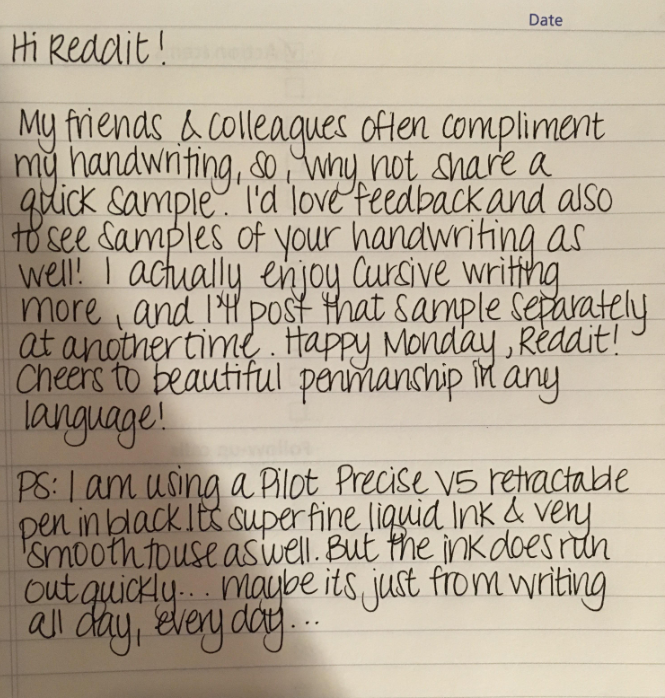 Date
Hi Reddit!
My friends & colleagues often compliment
my handwriting, so, why not share a
quick sample. I'd love feedback and also
to see samples of your handwriting as
well! I actually enjoy cursive writing
more, and I'll post that sample separately
at another time. Happy Monday, Reddit!
Cheers to beautiful penmanship in any
language!
PS: I am using a Pilot Precise V5 retractable
pen in black. Its superfine liquid ink & very
smooth to use as well. But the ink does run
out quickly... maybe its just from writing
all day, every day...